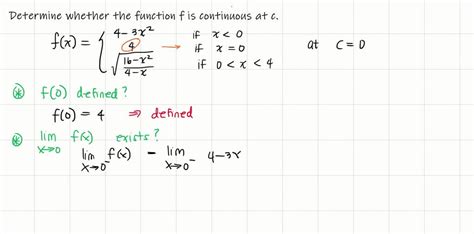 Determine whether the function f is continuous at c.
f(x) = { 4 - 3x² if x < 0
4 → if x = 0 at c = 0
√((16-x²)/(4-x)) if 0 < x < 4
⊛ f(0) defined?
f(0) = 4 ⇒ defined
⊛ lim x→0 f(x) exists?
lim x→0⁻ f(x) - lim x→0⁻ 4-3x